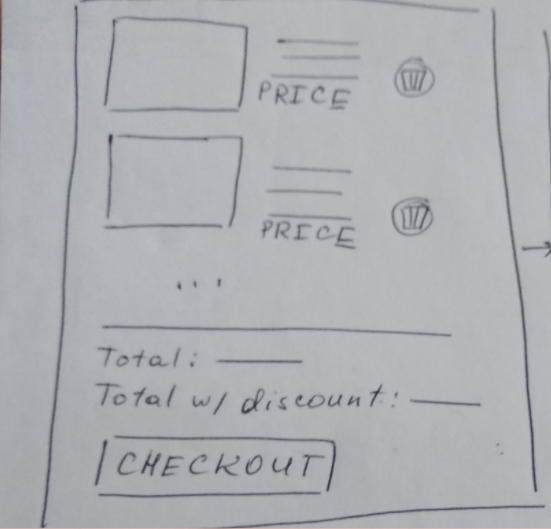 PRICE
PRICE
...
Total:
Total w/ discount:
CHECKOUT